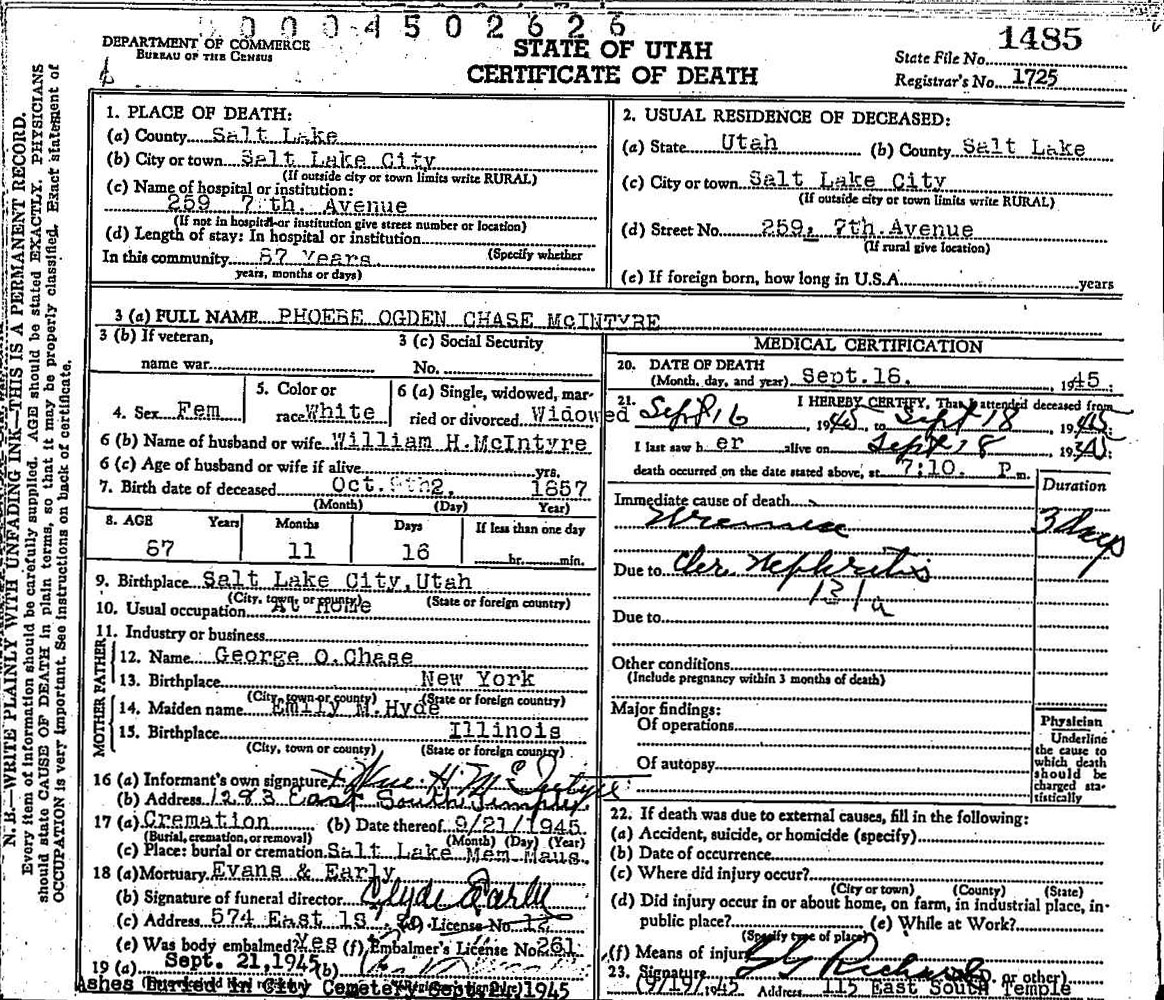 0 0 0 4 5 0 2 6 2 6
DEPARTMENT OF COMMERCE
BUREAU OF THE CENSUS
STATE OF UTAH
CERTIFICATE OF DEATH
State File No. 1485
Registrar's No. 1725
N. B.—WRITE PLAINLY WITH UNFADING INK—THIS IS A PERMANENT RECORD.
Every item of information should be carefully supplied. AGE should be stated EXACTLY. PHYSICIANS
should state CAUSE OF DEATH in plain terms, so that it may be properly classified. Exact statement of
OCCUPATION is very important. See instructions on back of certificate.
1. PLACE OF DEATH:
(a) County Salt Lake
(b) City or town Salt Lake City
(If outside city or town limits write RURAL)
(c) Name of hospital or institution:
259 7 th. Avenue
(If not in hospital or institution give street number or location)
(d) Length of stay: In hospital or institution
(Specify whether
In this community 87 Years.
years, months or days)
2. USUAL RESIDENCE OF DECEASED:
(a) State Utah (b) County Salt Lake
(c) City or town Salt Lake City
(If outside city or town limits write RURAL)
(d) Street No. 259, 7th. Avenue
(If rural give location)
(e) If foreign born, how long in U.S.A. years
3 (a) FULL NAME PHOEBE OGDEN CHASE McINTYRE
3 (b) If veteran,
name war
3 (c) Social Security
No.
4. Sex Fem
5. Color or
race White
6 (a) Single, widowed, mar-
ried or divorced Widowed
6 (b) Name of husband or wife William H.McIntyre
6 (c) Age of husband or wife if alive yrs.
7. Birth date of deceased Oct. 2, 1857
(Month) (Day) Year)
8. AGE Years Months Days If less than one day
87 11 16 hr. min.
9. Birthplace Salt Lake City,Utah
(City, town, or county) (State or foreign country)
10. Usual occupation At Home
11. Industry or business
FATHER
12. Name George O.Chase
13. Birthplace New York
(City, town or county) (State or foreign country)
MOTHER
14. Maiden name Emily M.Hyde
15. Birthplace Illinois
(City, town or county) (State or foreign country)
16 (a) Informant's own signature Wm. H. McIntyre
(b) Address 1293 East South Temple.
17 (a) Cremation (b) Date thereof 9/21/1945.
(Burial, cremation, or removal) (Month) (Day) (Year)
(c) Place: burial or cremation Salt Lake Mem Maus.
18 (a) Mortuary Evans & Early
(b) Signature of funeral director Clyde Early
(c) Address 574 East 1S License No. 12
(e) Was body embalmed? Yes (f) Embalmer's License No. 261
19 (a) Sept. 21,1945 (b)
Ashes Buried in City Cemetery Sept.21,1945
MEDICAL CERTIFICATION
20. DATE OF DEATH
(Month, day, and year) Sept.18. , 1945.
21. I HEREBY CERTIFY, That I attended deceased from
Sept 16 , 1945, to Sept 18 , 1945;
I last saw h er alive on Sept 18 , 1945;
death occurred on the date stated above, at 7:10. P m.
Duration
Immediate cause of death
Uremia 3 days
Due to Chr. Nephritis
131a
Due to
Other conditions
(Include pregnancy within 3 months of death)
Major findings:
Of operations
Of autopsy
Physician
Underline
the cause to
which death
should be
charged sta-
tistically
22. If death was due to external causes, fill in the following:
(a) Accident, suicide, or homicide (specify)
(b) Date of occurrence
(c) Where did injury occur?
(City or town) (County) (State)
(d) Did injury occur in or about home, on farm, in industrial place, in
public place? (e) While at Work?
(Specify type of place)
(f) Means of injury
23. Signature G G Richards M.D. or other)
9/19/1945 Address 115 East South Temple